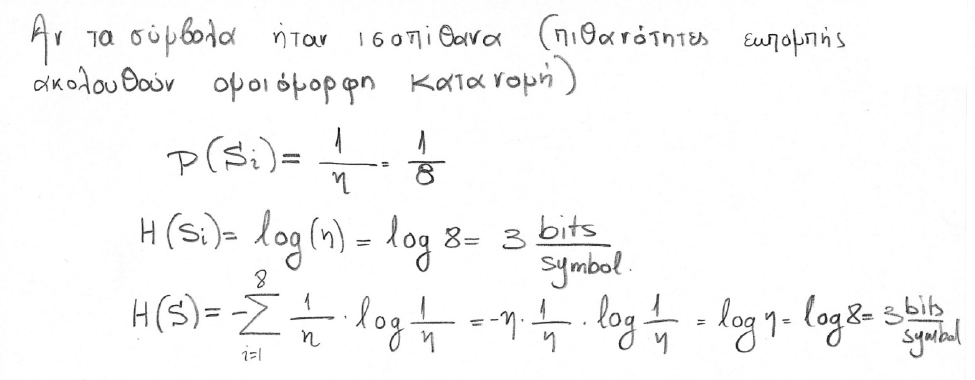 Αν τα σύμβολα ήταν ισοπίθανα (πιθανότητες εκπομπής
ακολουθούν ομοιόμορφη κατανομή)
P(Si) = 1/η = 1/8
H(Si) = log(η) = log 8 = 3 bits/symbol.
H(S) = -∑_{i=1}^{8} 1/n · log 1/η = -η · 1/η · log 1/η = log η = log 8 = 3 bits/symbol